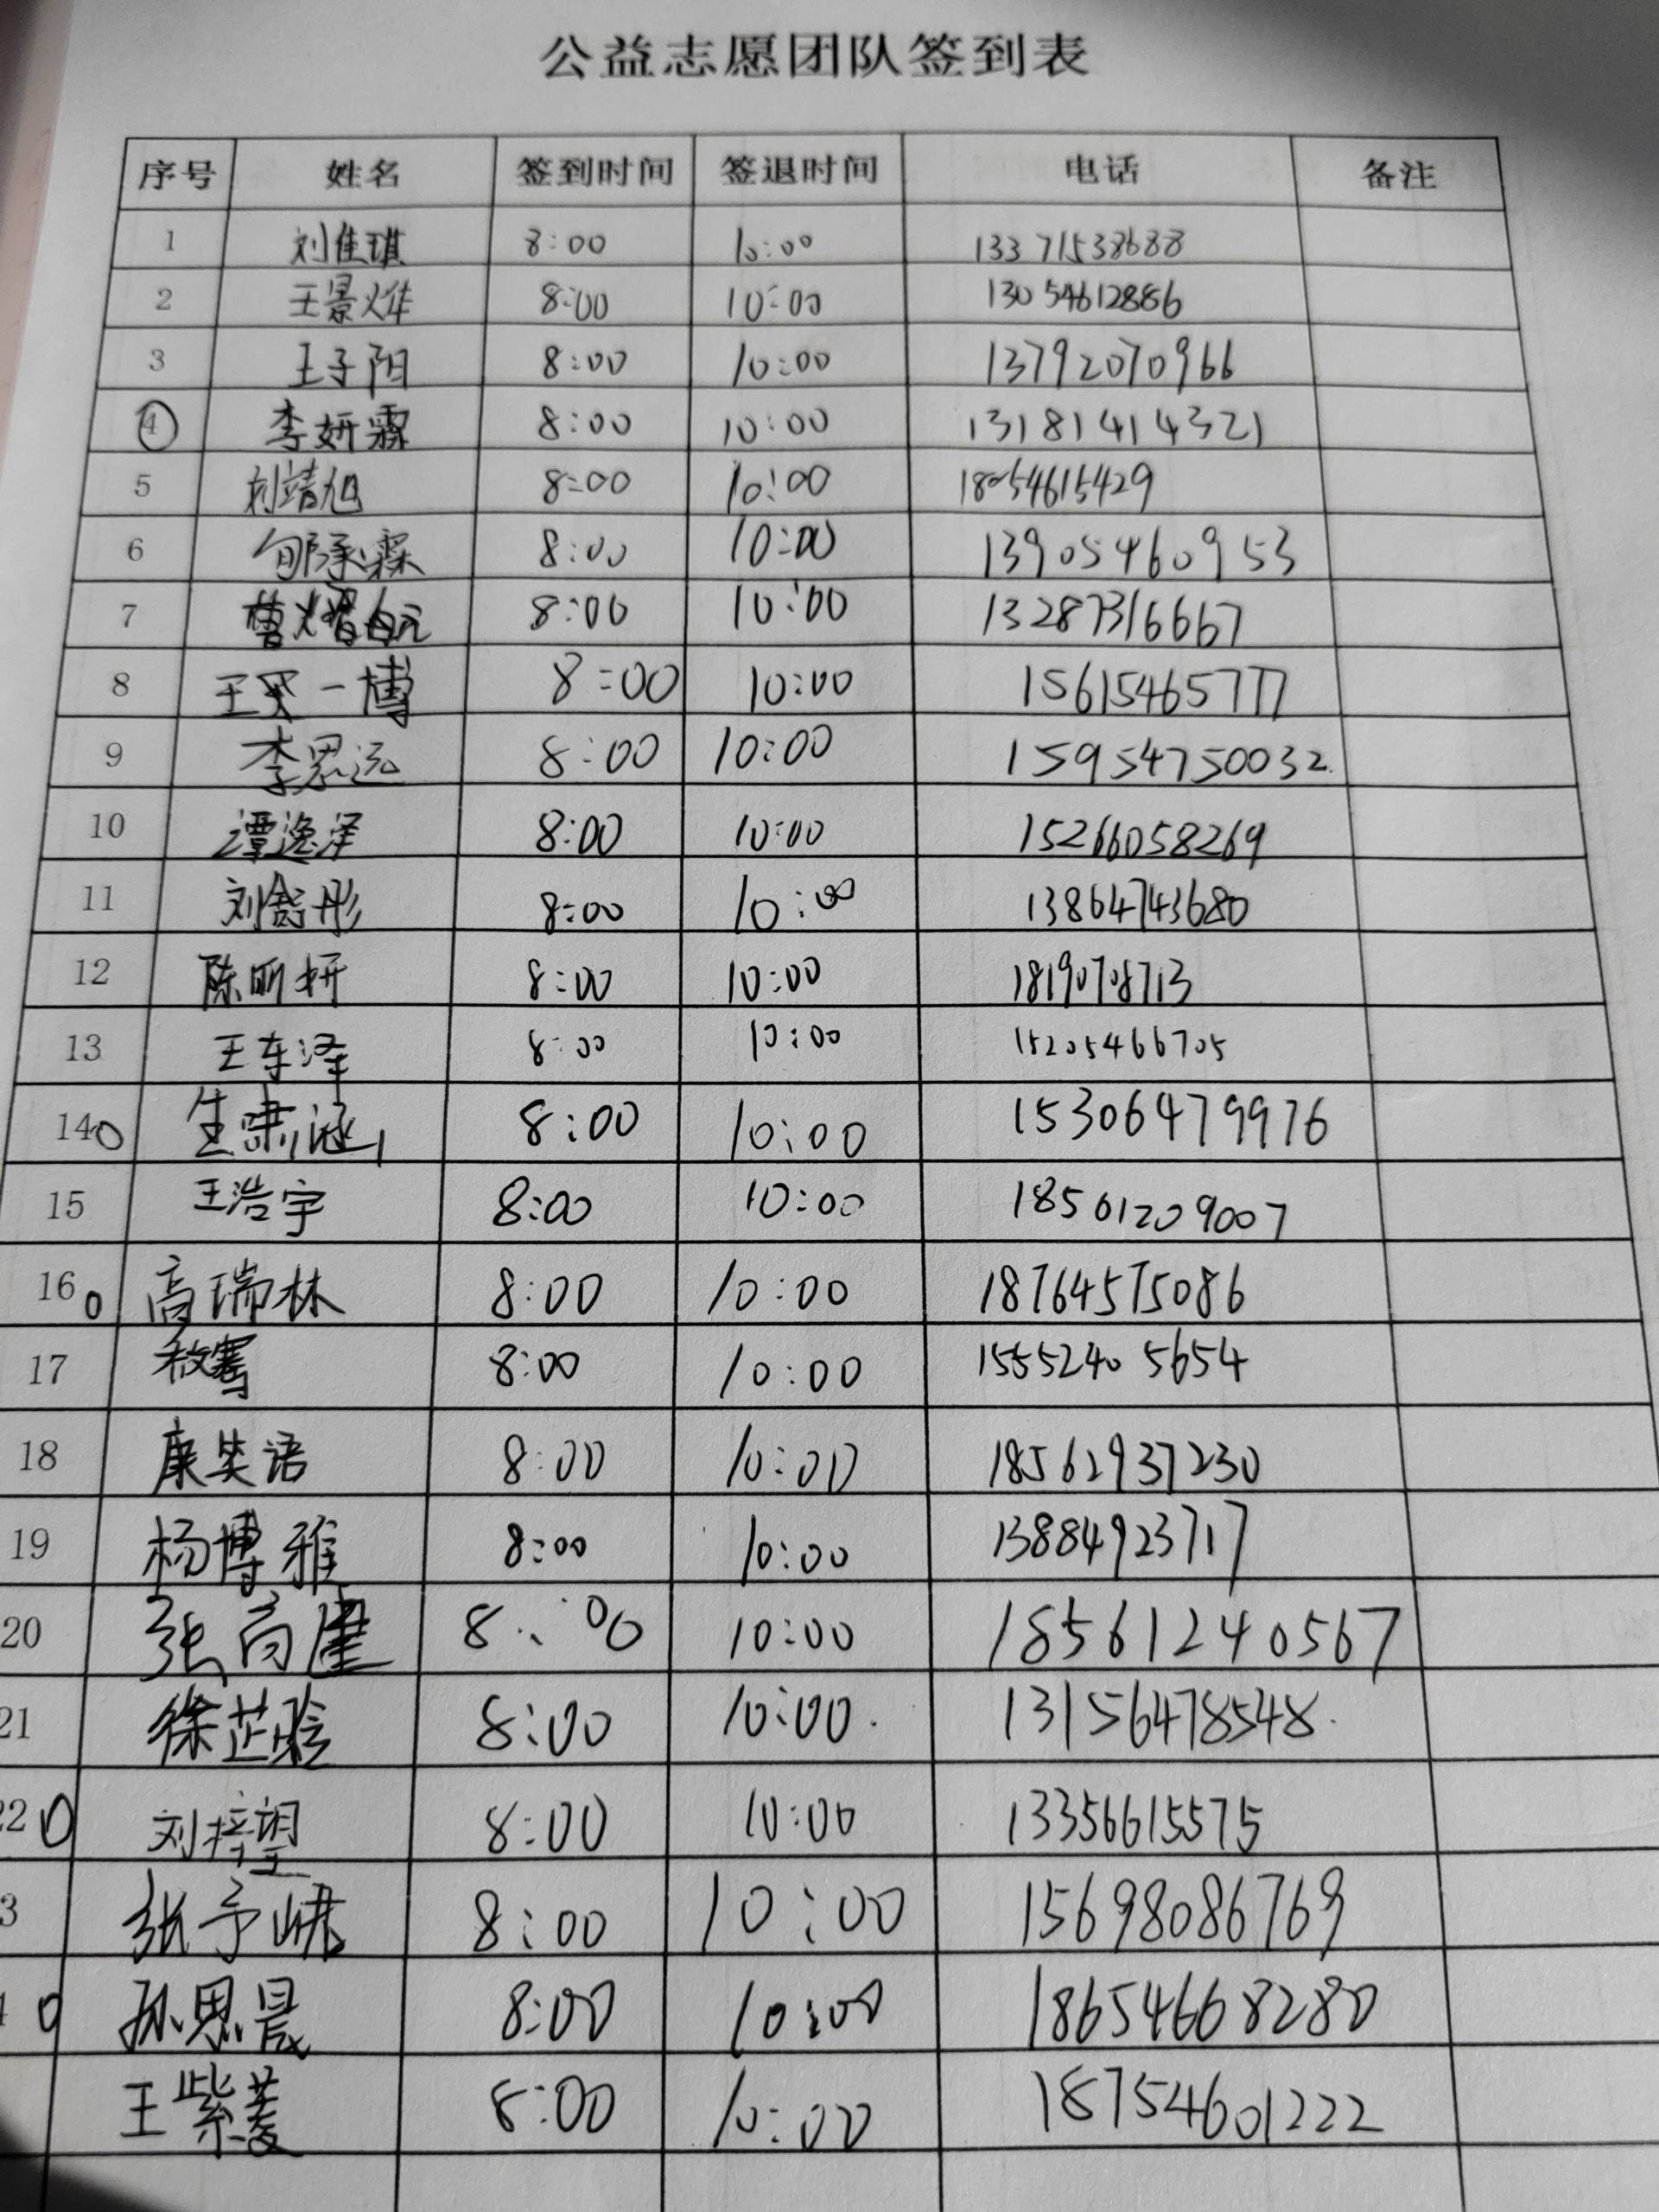 公益志愿团队签到表
序号 姓名 签到时间 签退时间 电话 备注
1 刘佳琪 8:00 10:00 13371538688
2 王景烨 8:00 10:00 13054612886
3 王子阳 8:00 10:00 13792070966
4 李妍霖 8:00 10:00 13181414321
5 刘靖旭 8:00 10:00 18054615429
6 郇承霖 8:00 10:00 13905460953
7 8:00 10:00 13287316667
8 王一博 8:00 10:00 15615465777
9 李思远 8:00 10:00 15954750032
10 谭逸泽 8:00 10:00 15266058269
11 刘舒彤 8:00 10:00 13864743680
12 陈昕妍 8:00 10:00 18190708713
13 王东泽 8:00 10:00 15205466705
14 生啸涵 8:00 10:00 15306479976
15 王浩宇 8:00 10:00 18561209007
16 高瑞林 8:00 10:00 18764575086
17 8:00 10:00 15552405654
18 康笑语 8:00 10:00 18562937230
19 杨博雅 8:00 10:00 13884923717
20 张高崖 8:00 10:00 18561240567
21 徐芷晗 8:00 10:00 13156478548
22 刘梓望 8:00 10:00 13356615575
3 张予 8:00 10:00 15698086769
孙思晨 8:00 10:00 18654668280
王紫菱 8:00 10:00 18754601222